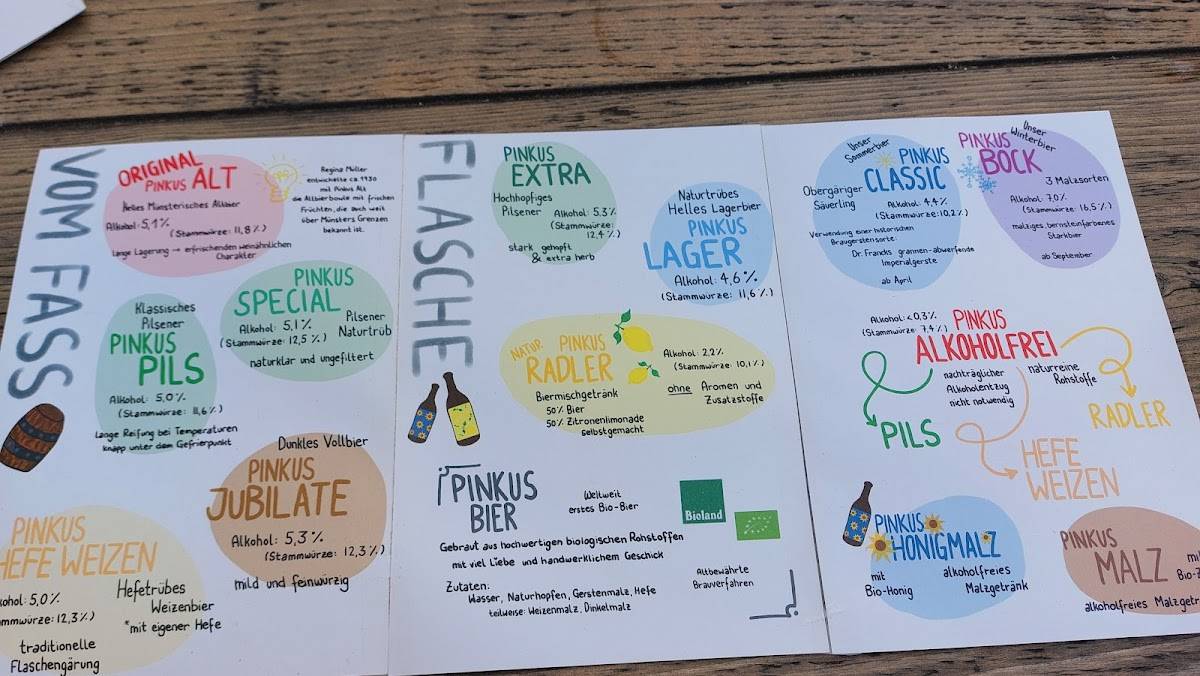 VOM FASS
ORIGINAL
PINKUS ALT
Helles Münsterisches Altbier
Alkohol: 5,1%
(Stammwürze: 11,8%)
lange Lagerung → erfrischenden weinähnlichen
Charakter
Regina Müller
entwickelte ca. 1930
mit Pinkus Alt
die Altbierbowle mit frischen
Früchten, die auch weit
über Münsters Grenzen
bekannt ist.
Klassisches
Pilsener
PINKUS
PILS
Alkohol: 5,0%
(Stammwürze: 11,6%)
lange Reifung bei Temperaturen
knapp unter dem Gefrierpunkt
PINKUS
SPECIAL
Alkohol: 5,1%
(Stammwürze: 12,5%)
Pilsener
Naturtrüb
naturklar und ungefiltert
Dunkles Vollbier
PINKUS
JUBILATE
Alkohol: 5,3%
(Stammwürze: 12,3%)
mild und feinwürzig
PINKUS
HEFE WEIZEN
kohol: 5,0%
mmwürze: 12,3%)
Hefetrübes
Weizenbier
*mit eigener Hefe
traditionelle
Flaschengärung
FLASCHE
PINKUS
EXTRA
Hochhopfiges
Pilsener
Alkohol: 5,3%
(Stammwürze:
12,4%)
stark gehopft
& extra herb
Naturtrübes
Helles Lagerbier
PINKUS
LAGER
Alkohol: 4,6%
(Stammwürze: 11,6%)
NATUR PINKUS
RADLER
Biermischgetränk
50% Bier
50% Zitronenlimonade
selbstgemacht
Alkohol: 2,2%
(Stammwürze: 10,1%)
ohne Aromen und
Zusatzstoffe
PINKUS
BIER
Weltweit
erstes Bio-Bier
Bioland
Gebraut aus hochwertigen biologischen Rohstoffen
mit viel Liebe und handwerklichem Geschick
Zutaten:
Wasser, Naturhopfen, Gerstenmalz, Hefe
teilweise: Weizenmalz, Dinkelmalz
Altbewährte
Brauverfahren
Unser
Sommerbier
PINKUS
CLASSIC
Obergäriger
Säuerling
Alkohol: 4,4%
(Stammwürze: 10,2%)
Verwendung einer historischen
Braugerstensorte:
Dr. Francks grannen-abwerfende
Imperialgerste
ab April
Unser
Winterbier
PINKUS
BOCK
3 Malzsorten
Alkohol: 7,0%
(Stammwürze: 16,5%)
malziges, bernsteinfarbenes
Starkbier
ab September
Alkohol: <0,3%
(Stammwürze: 7,4%)
PINKUS
ALKOHOLFREI
nachträglicher
Alkoholentzug
nicht notwendig
naturreine
Rohstoffe
PILS
HEFE
WEIZEN
RADLER
PINKUS
HONIGMALZ
mit
Bio-Honig
alkoholfreies
Malzgetränk
PINKUS
MALZ
mi
Bio-Z
alkoholfreies Malzgetr